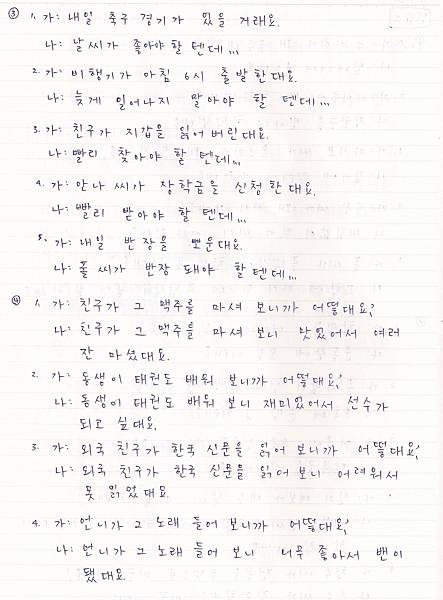 ③ 1. 가: 내일 축구 경기가 있을 거래요.
나: 날씨가 좋아야 할 텐데...
2. 가: 비행기가 아침 6시 출발한대요.
나: 늦게 일어나지 말아야 할 텐데...
3. 가: 친구가 지갑을 잃어 버린대요.
나: 빨리 찾아야 할 텐데...
4. 가: 안나 씨가 장학금을 신청한대요.
나: 빨리 받아야 할 텐데...
5. 가: 내일 반장을 뽀운대요.
나: 폴 씨가 반장 돼야 할텐데...
④ 1. 가: 친구가 그 맥주를 마셔 보니까 어떻대요?
나: 친구가 그 맥주를 마셔 보니 맛있어서 여러
잔 마셨대요.
2. 가: 동생이 태권도 배워 보니까 어떻대요?
나: 동생이 태권도 배워 보니 재미있어서 선수가
되고 싶대요.
3. 가: 외국 친구가 한국 신문을 읽어 보니까 어떻대요?
나: 외국 친구가 한국 신문을 읽어 보니 어려워서
못 읽었대요.
4. 가: 언니가 그 노래 들어 보니까 어떻대요?
나: 언니가 그 노래 들어 보니 너무 좋아서 팬이
됐대요.